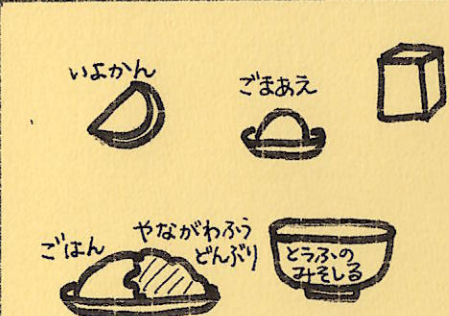 いよかん
ごまあえ
ごはん
やながわふう
どんぶり
とうふの
みそしる